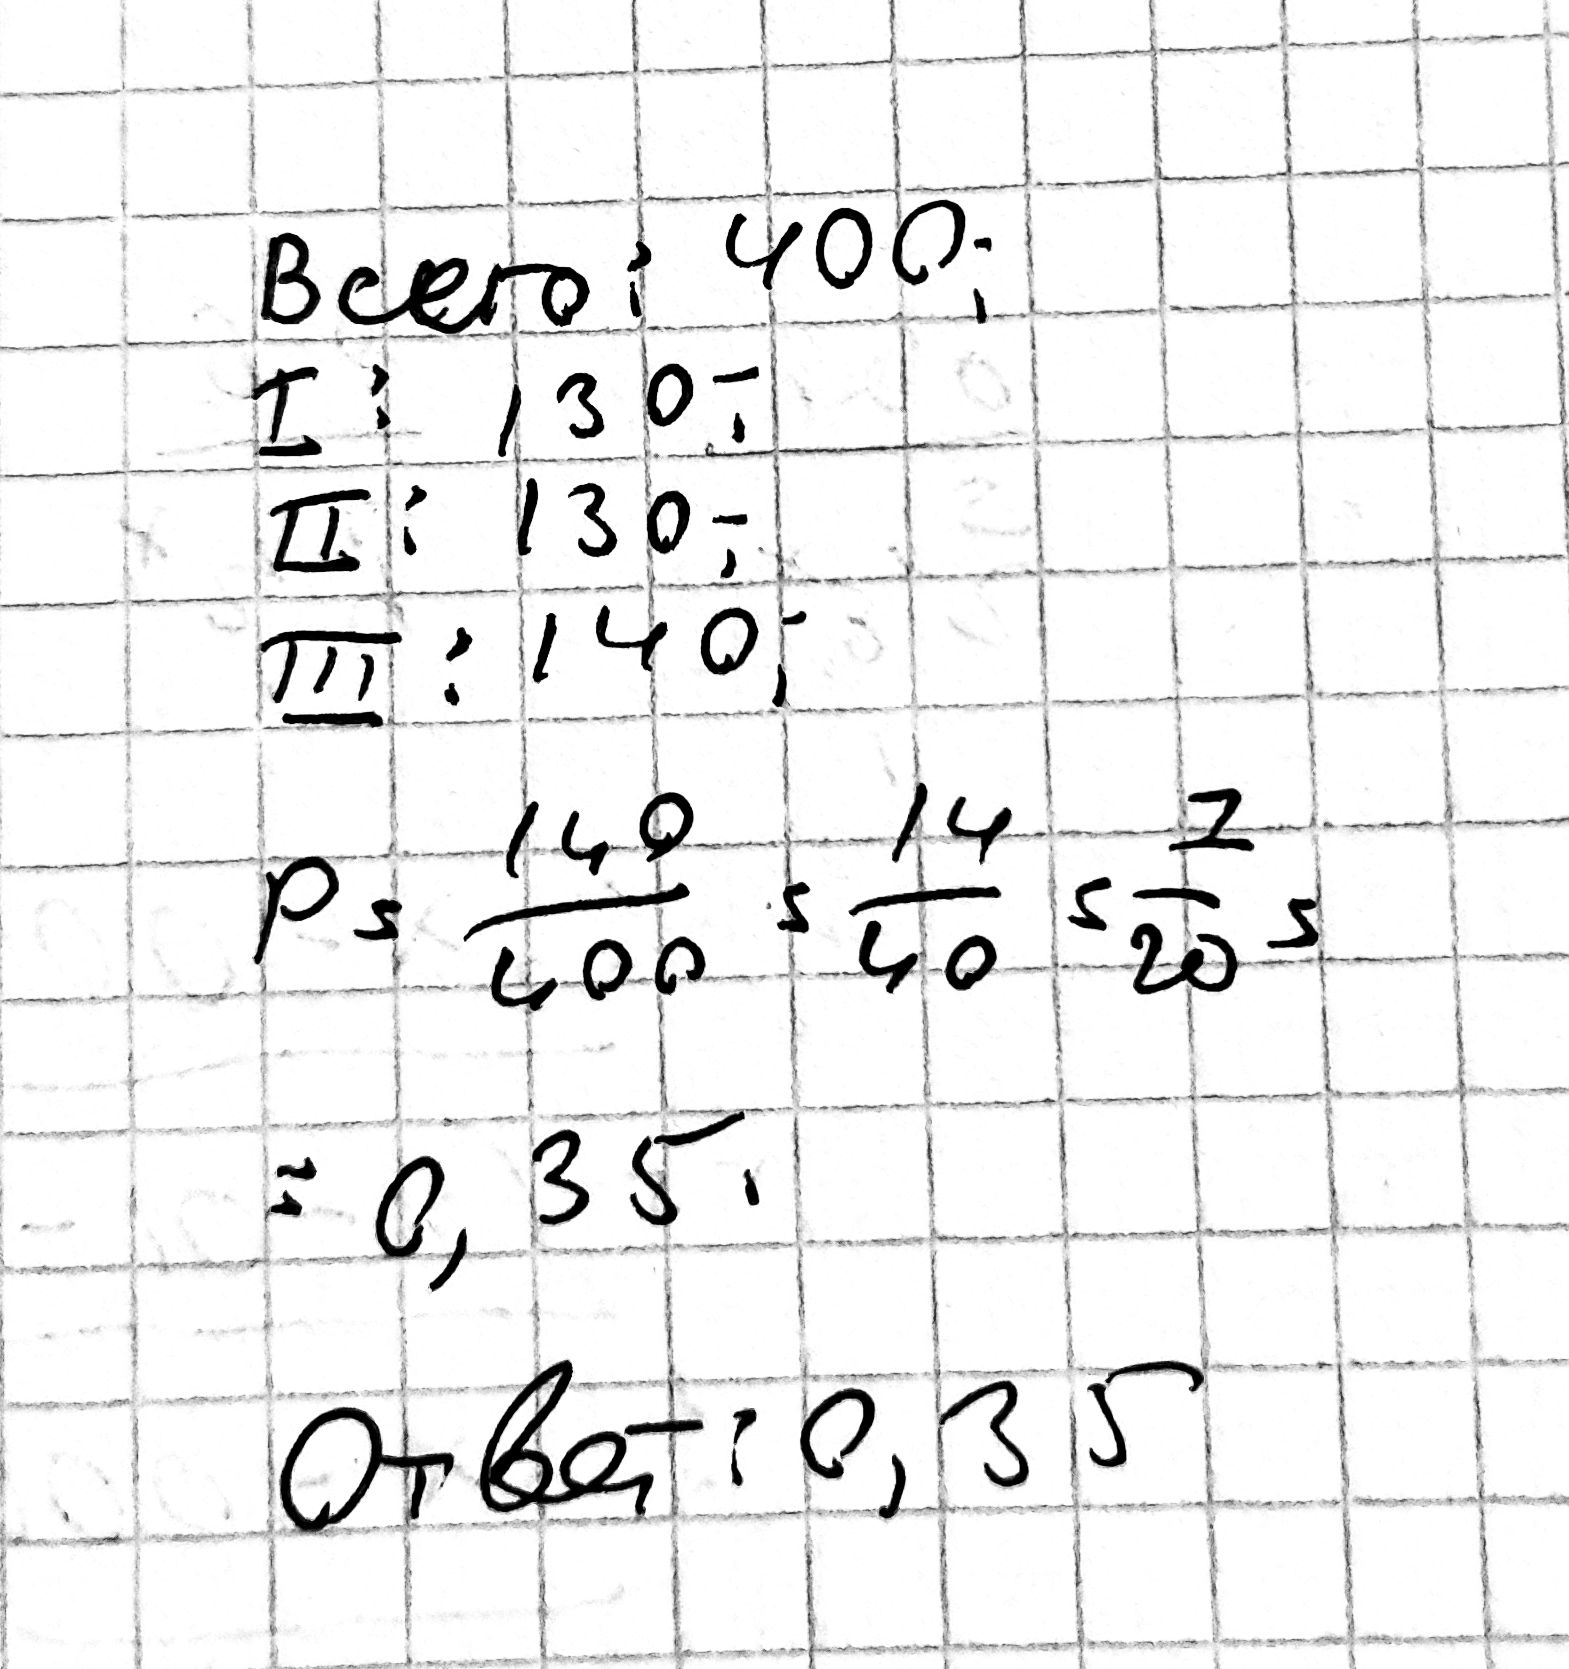 Всего: 400;
I: 130;
II: 130;
III: 140;
P = 140/400 = 14/40 = 7/20 =
= 0,35.
Ответ: 0,35